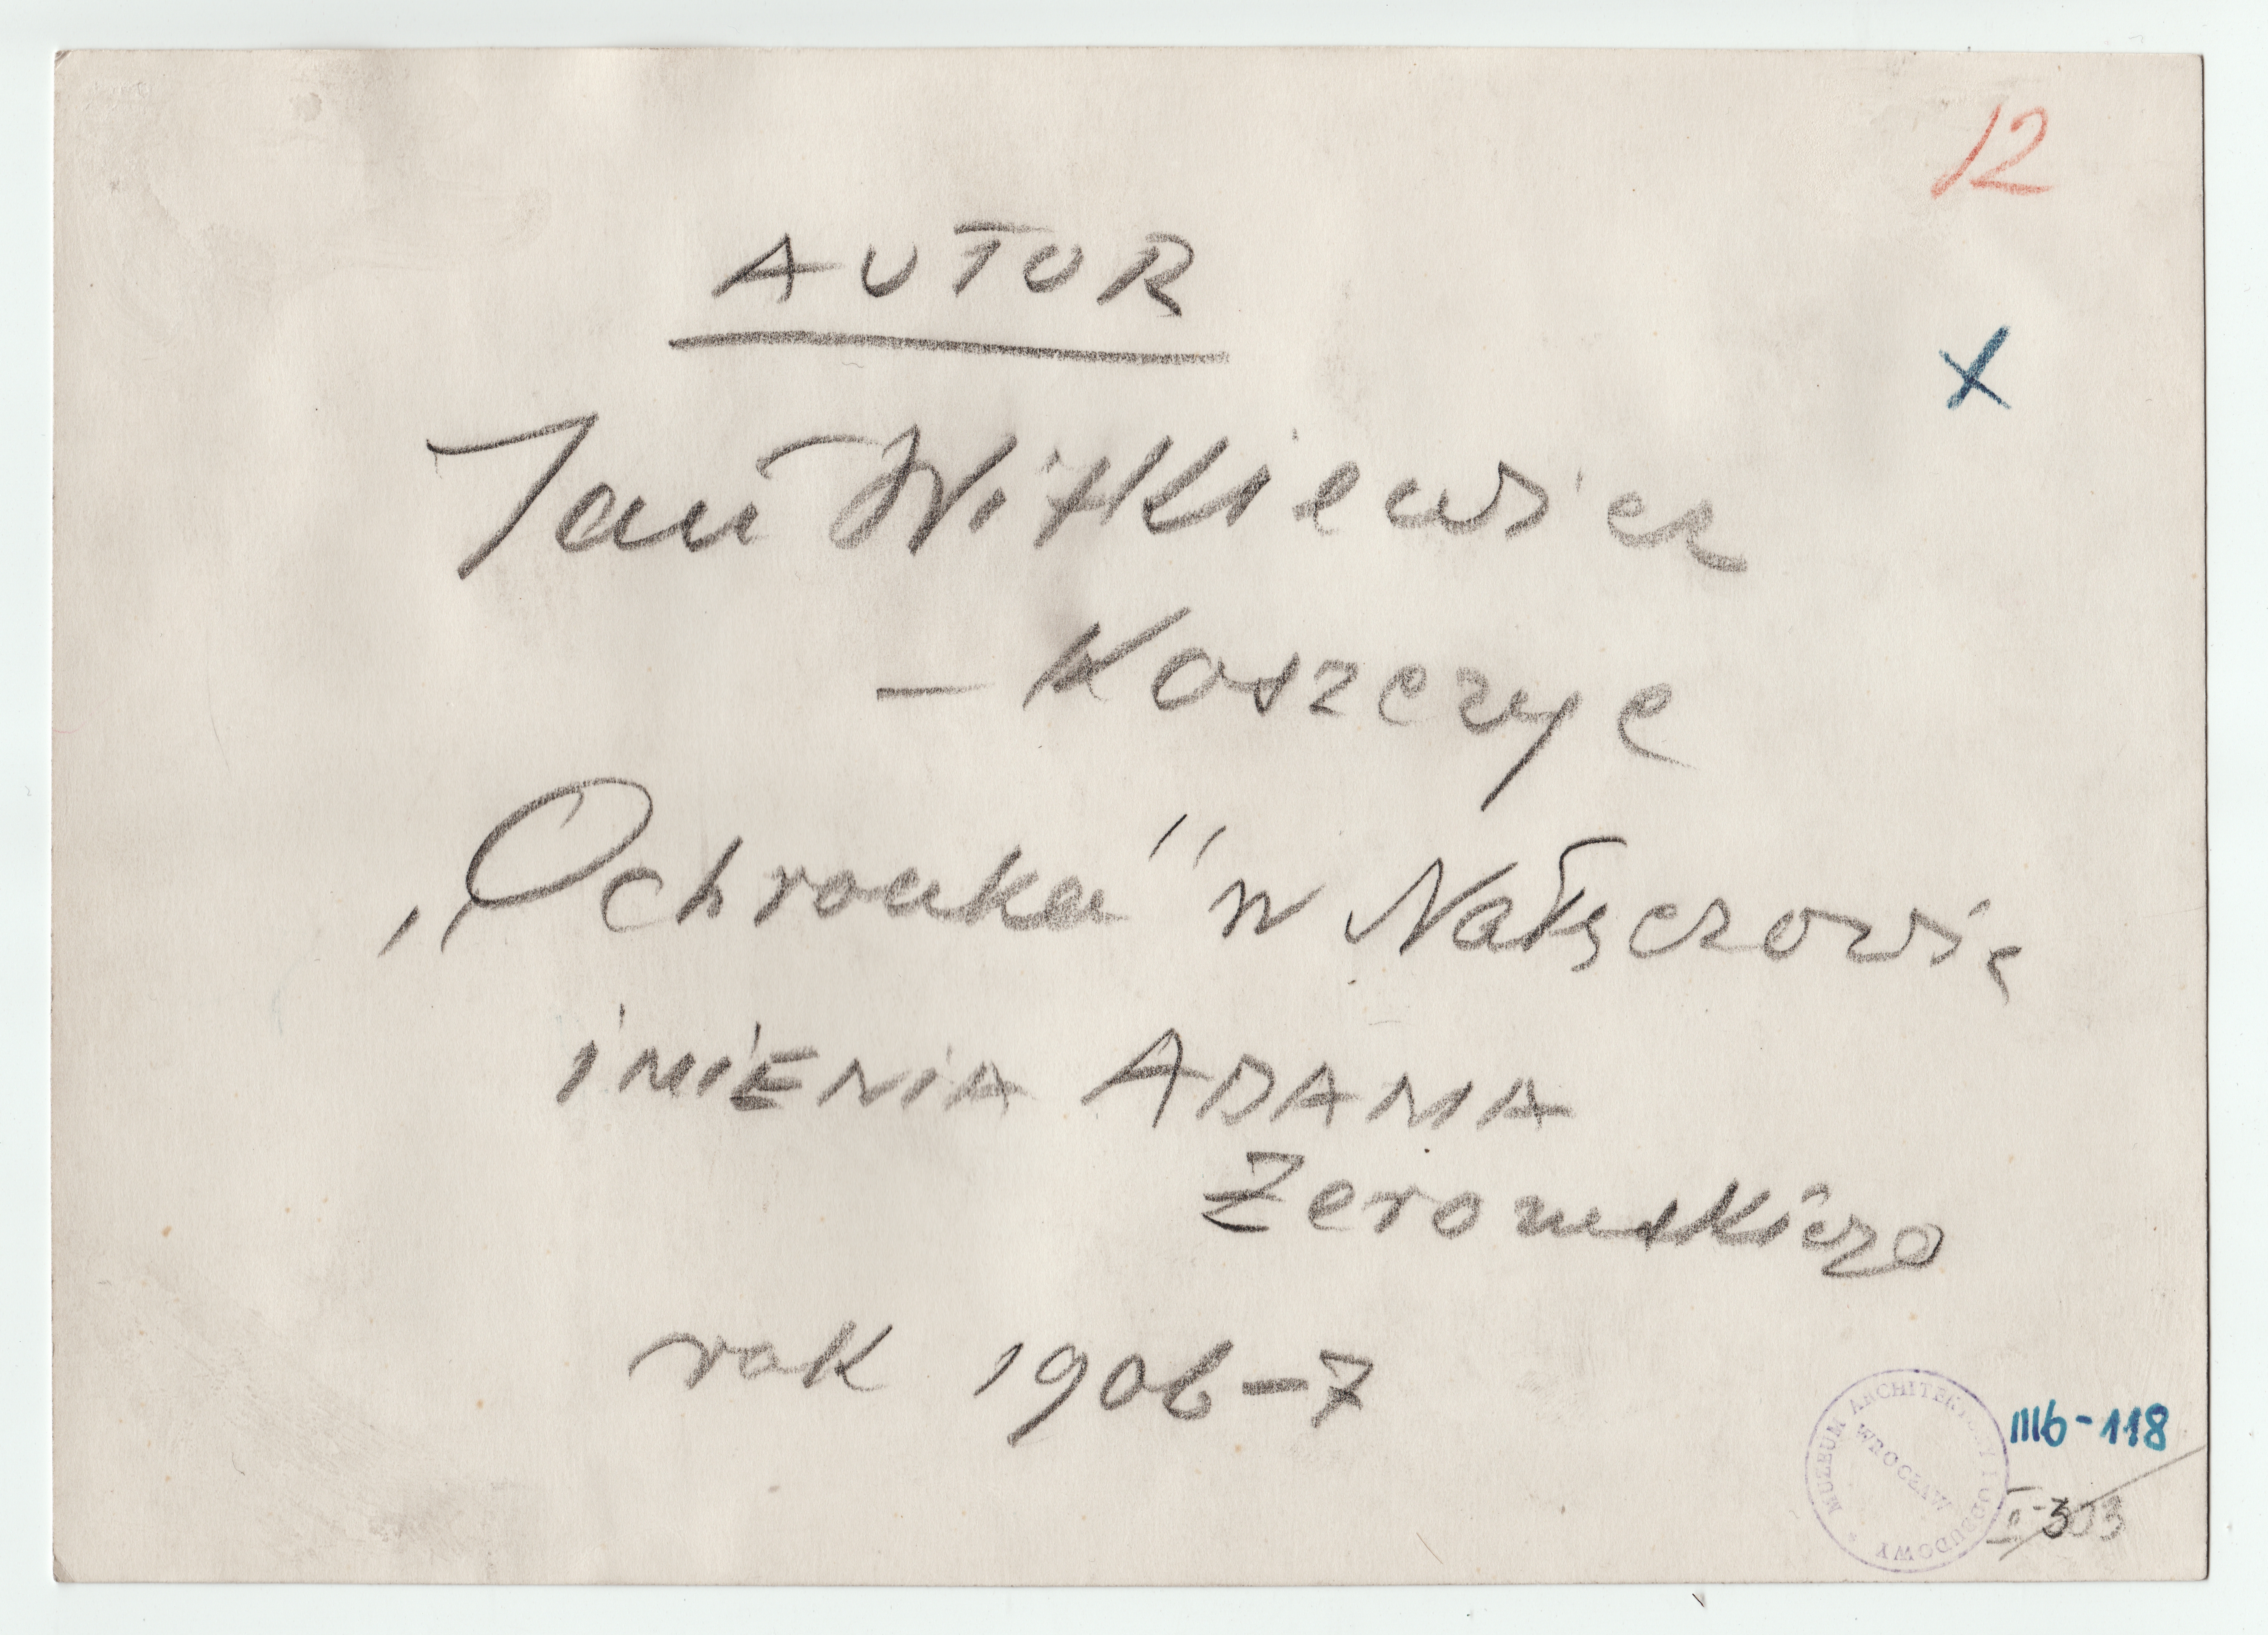 12
AUTOR
Jan Witkiewicz
– Koszczyc
„Ochronka" w Nałęczowie
iMiENiA ADAMA
Żeromskiego
rok 1906–7
MUZEUM ARCHITEKTURY I ODBUDOWY
WROCŁAW
IIIb-118
II-303